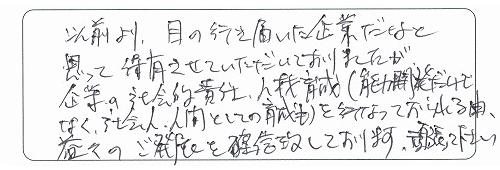 以前より、目の行き届いた企業だなと
思って保有させていただいておりましたが
企業の社会的責任、人材育成(能力開発だけで
なく、社会人、人間としての育成も)を行なっておられる由、
益々のご発展を確信致しております。頑張って下さい